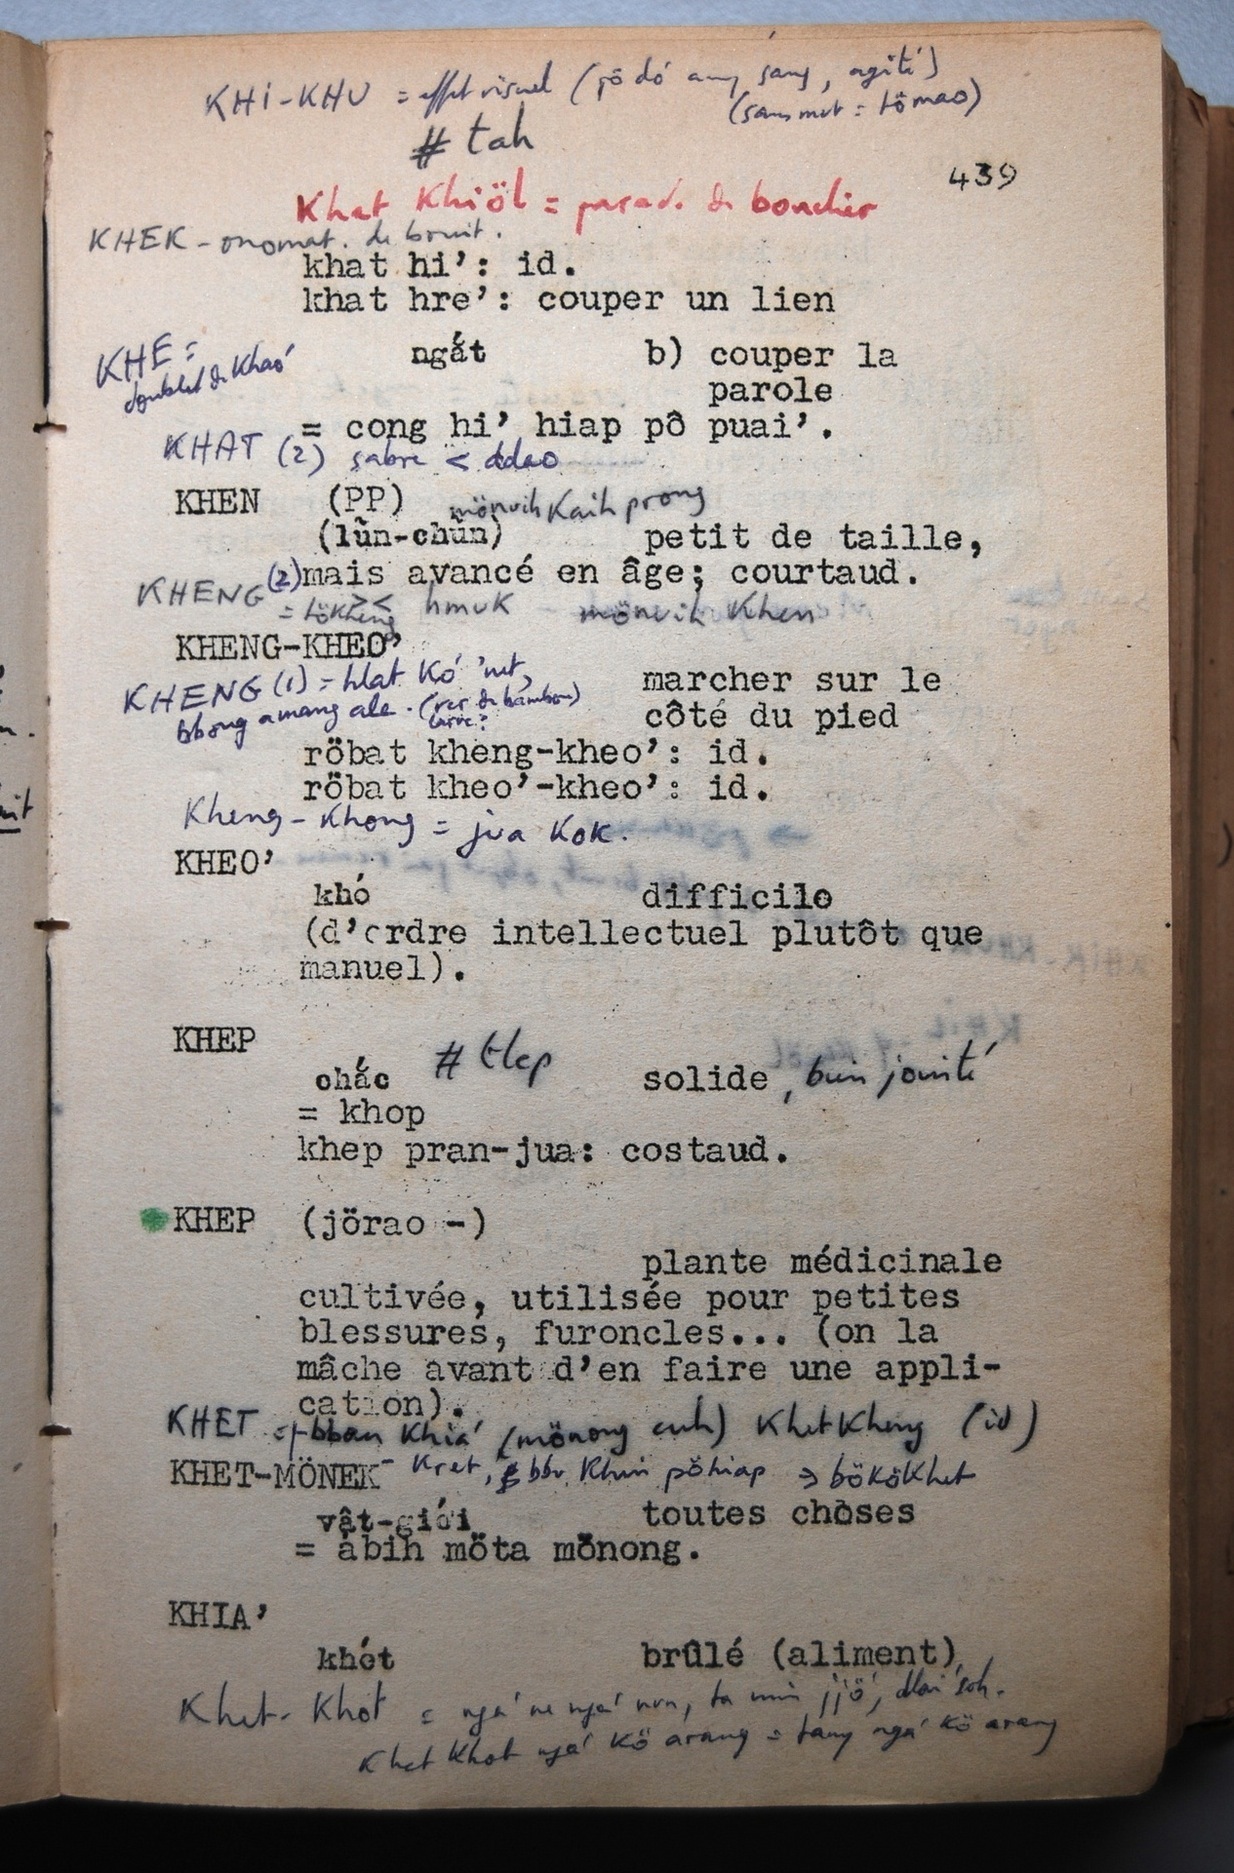 KHI-KHU = effet visuel (pö dó ang sang, agité)
(sans mvt = tömao)
# tah
439
Khat Khiöl = parad. de bouclier
KHEK - onomat. de bruit.
khat hi’: id.
khat hre’: couper un lien
KHE =
doublet de Khaó
ngắt b) couper la
parole
= cong hi’ hiap pô puai’.
KHAT (2) sabre < ddao
KHEN (PP) mönuih Kaih prong
(lũn-chũn) petit de taille,
mais avancé en âge; courtaud.
KHENG (2)
= tökheng >< hmuK mönuih Khen
KHENG-KHEO’
KHENG (1) = hlat Kó
bbong amang ale. (ver de bambou)
larve?
marcher sur le
côté du pied
röbat kheng-kheo’: id.
röbat kheo’-kheo’: id.
Kheng - Khong = jua KoK.
KHEO’
khó difficile
(d’ordre intellectuel plutôt que
manuel).
KHEP
chắc # tlep solide, bien jointé
= khop
khep pran-jua: costaud.
KHEP (jörao -)
plante médicinale
cultivée, utilisée pour petites
blessures, furoncles... (on la
mâche avant d’en faire une appli-
cation).
KHET = Khiá (mönong cuh) Khet Kheng (id)
KHET-MÖNEK - Kret, bbu Khin pöhiap => bököKhet
vật-giới toutes choses
= abih möta mönong.
KHIA’
khét brûlé (aliment)
Khet-Khot = ngá ne ngá nun,
Khet Khot ngá Kö arang = tang ngá Kö arang